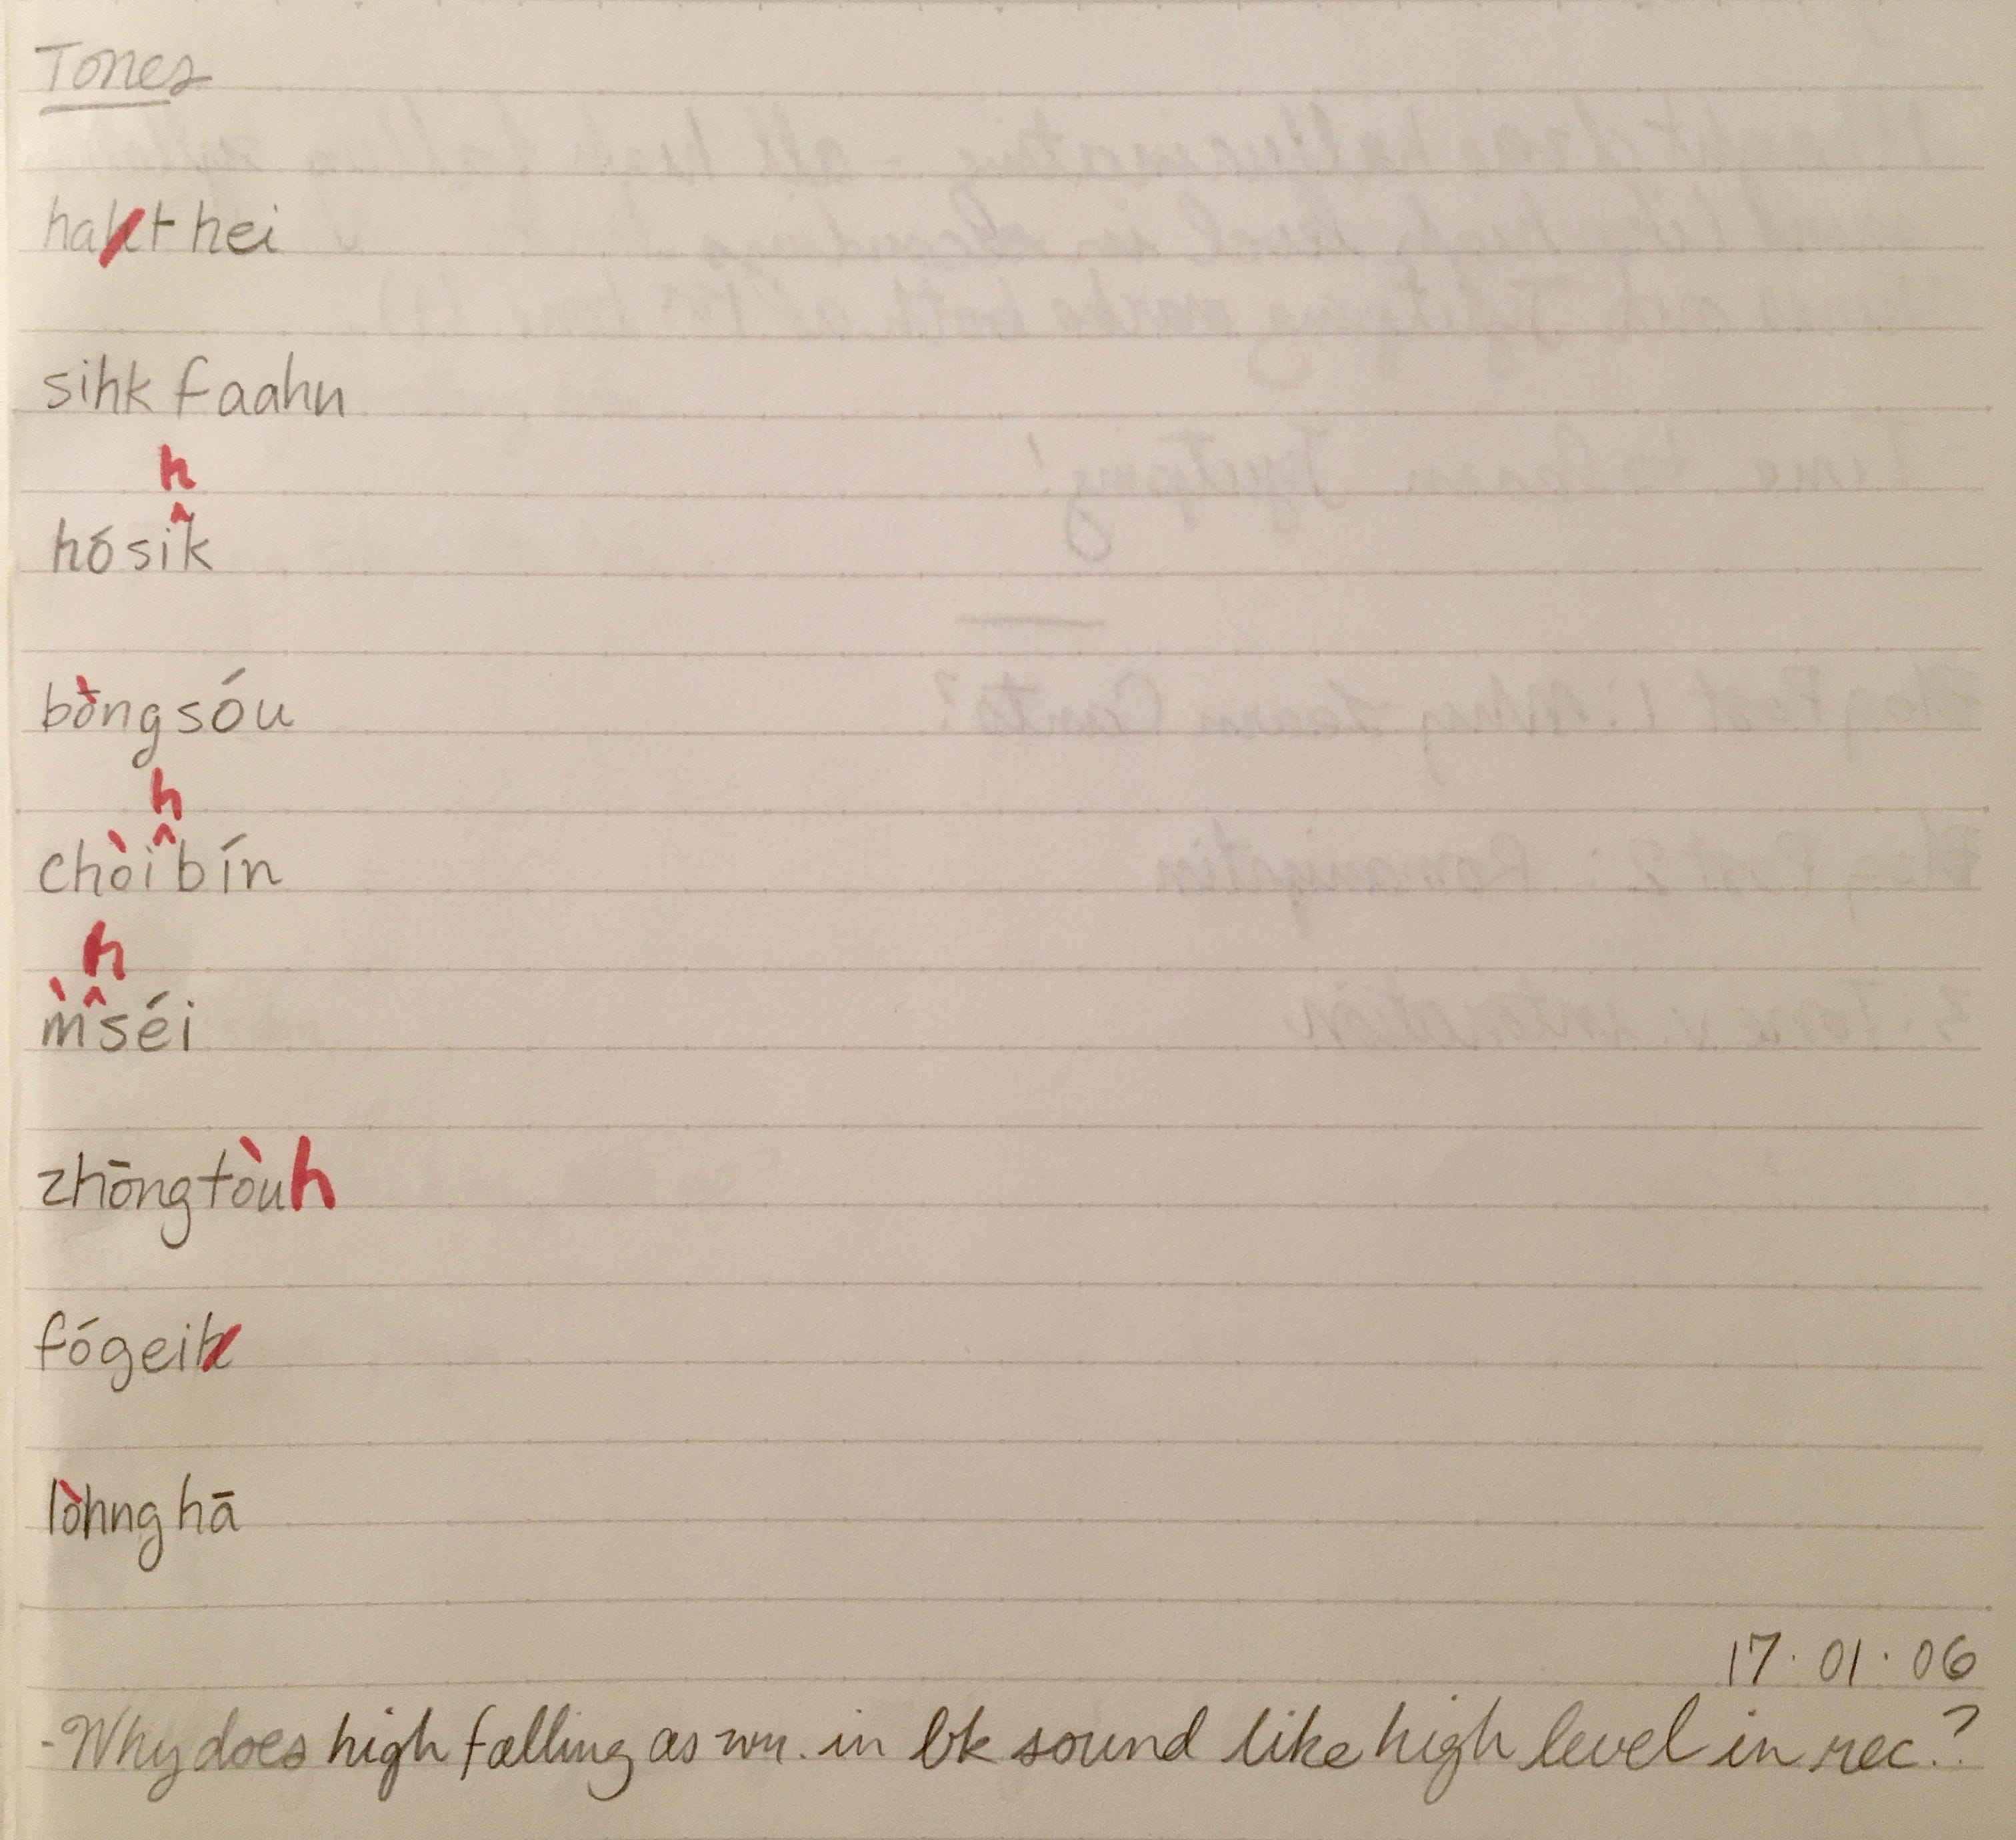 Tones
haht hei
sihk faahn
h
hósik
bòng sóu
h
chòi bín
h
m̀ séi
zhōng tòuh
fógeih
lòhng hā
17.01.06
-Why does high falling as wr. in bk sound like high level in rec.?